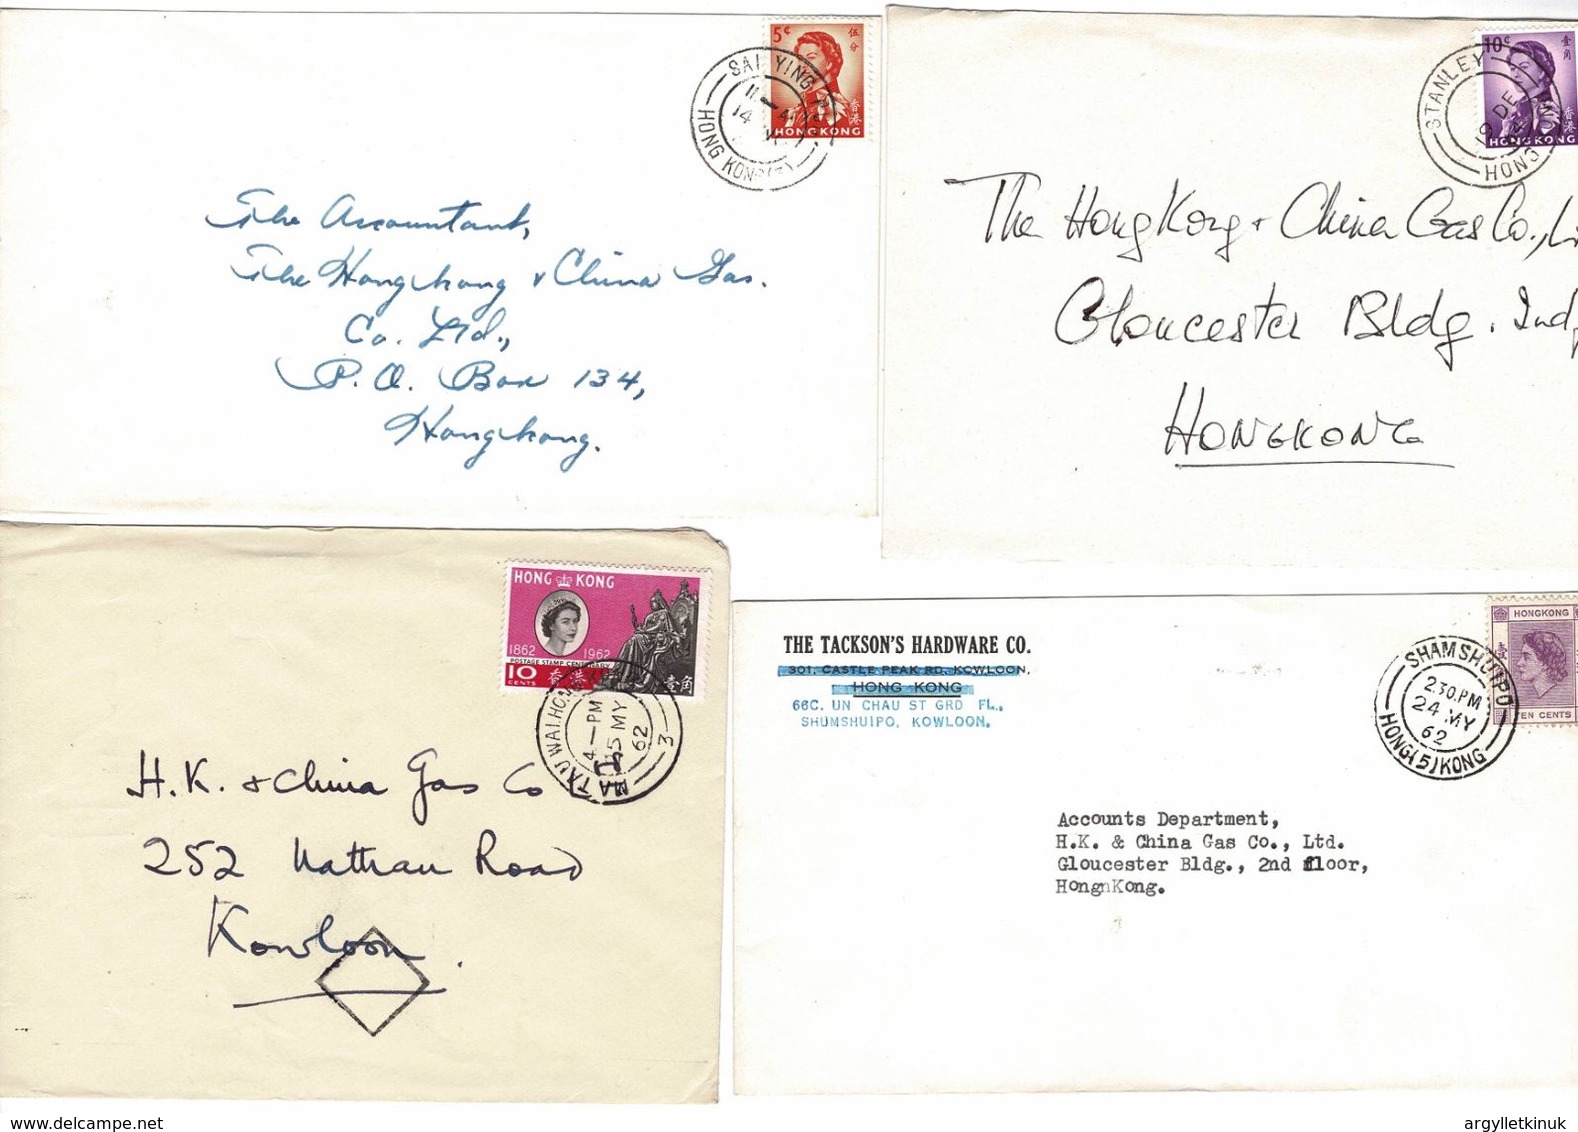 5¢
伍分
香港
HONG KONG
SAI YING
11
14
HONG KONG
The Accountant,
The Hongkong & China Gas.
Co. Ltd.,
P. O. Box 134,
Hongkong.
10¢
壹角
香港
HONG KONG
STANLEY
19 DE
HONG KONG
The Hong Kong & China Gas Co.,
Gloucester Bldg.
HONGKONG
HONG KONG
1862 1962
POSTAGE STAMP CENTENARY
10 CENTS 香港 壹角
MA TAU WAI.HONG
4—PM
15 MY
62
3
H.K. & China Gas Co
252 Nathan Road
Kowloon.
THE TACKSON'S HARDWARE CO.
301, CASTLE PEAK RD. KOWLOON,
HONG KONG
66C, UN CHAU ST GRD FL.,
SHUMSHUIPO, KOWLOON.
HONGKONG
TEN CENTS
SHAMSHUIPO
2.30.PM
24 MY
62
HONG(5)KONG
Accounts Department,
H.K. & China Gas Co., Ltd.
Gloucester Bldg., 2nd floor,
HongnKong.
www.delcampe.net
argylletkinuk